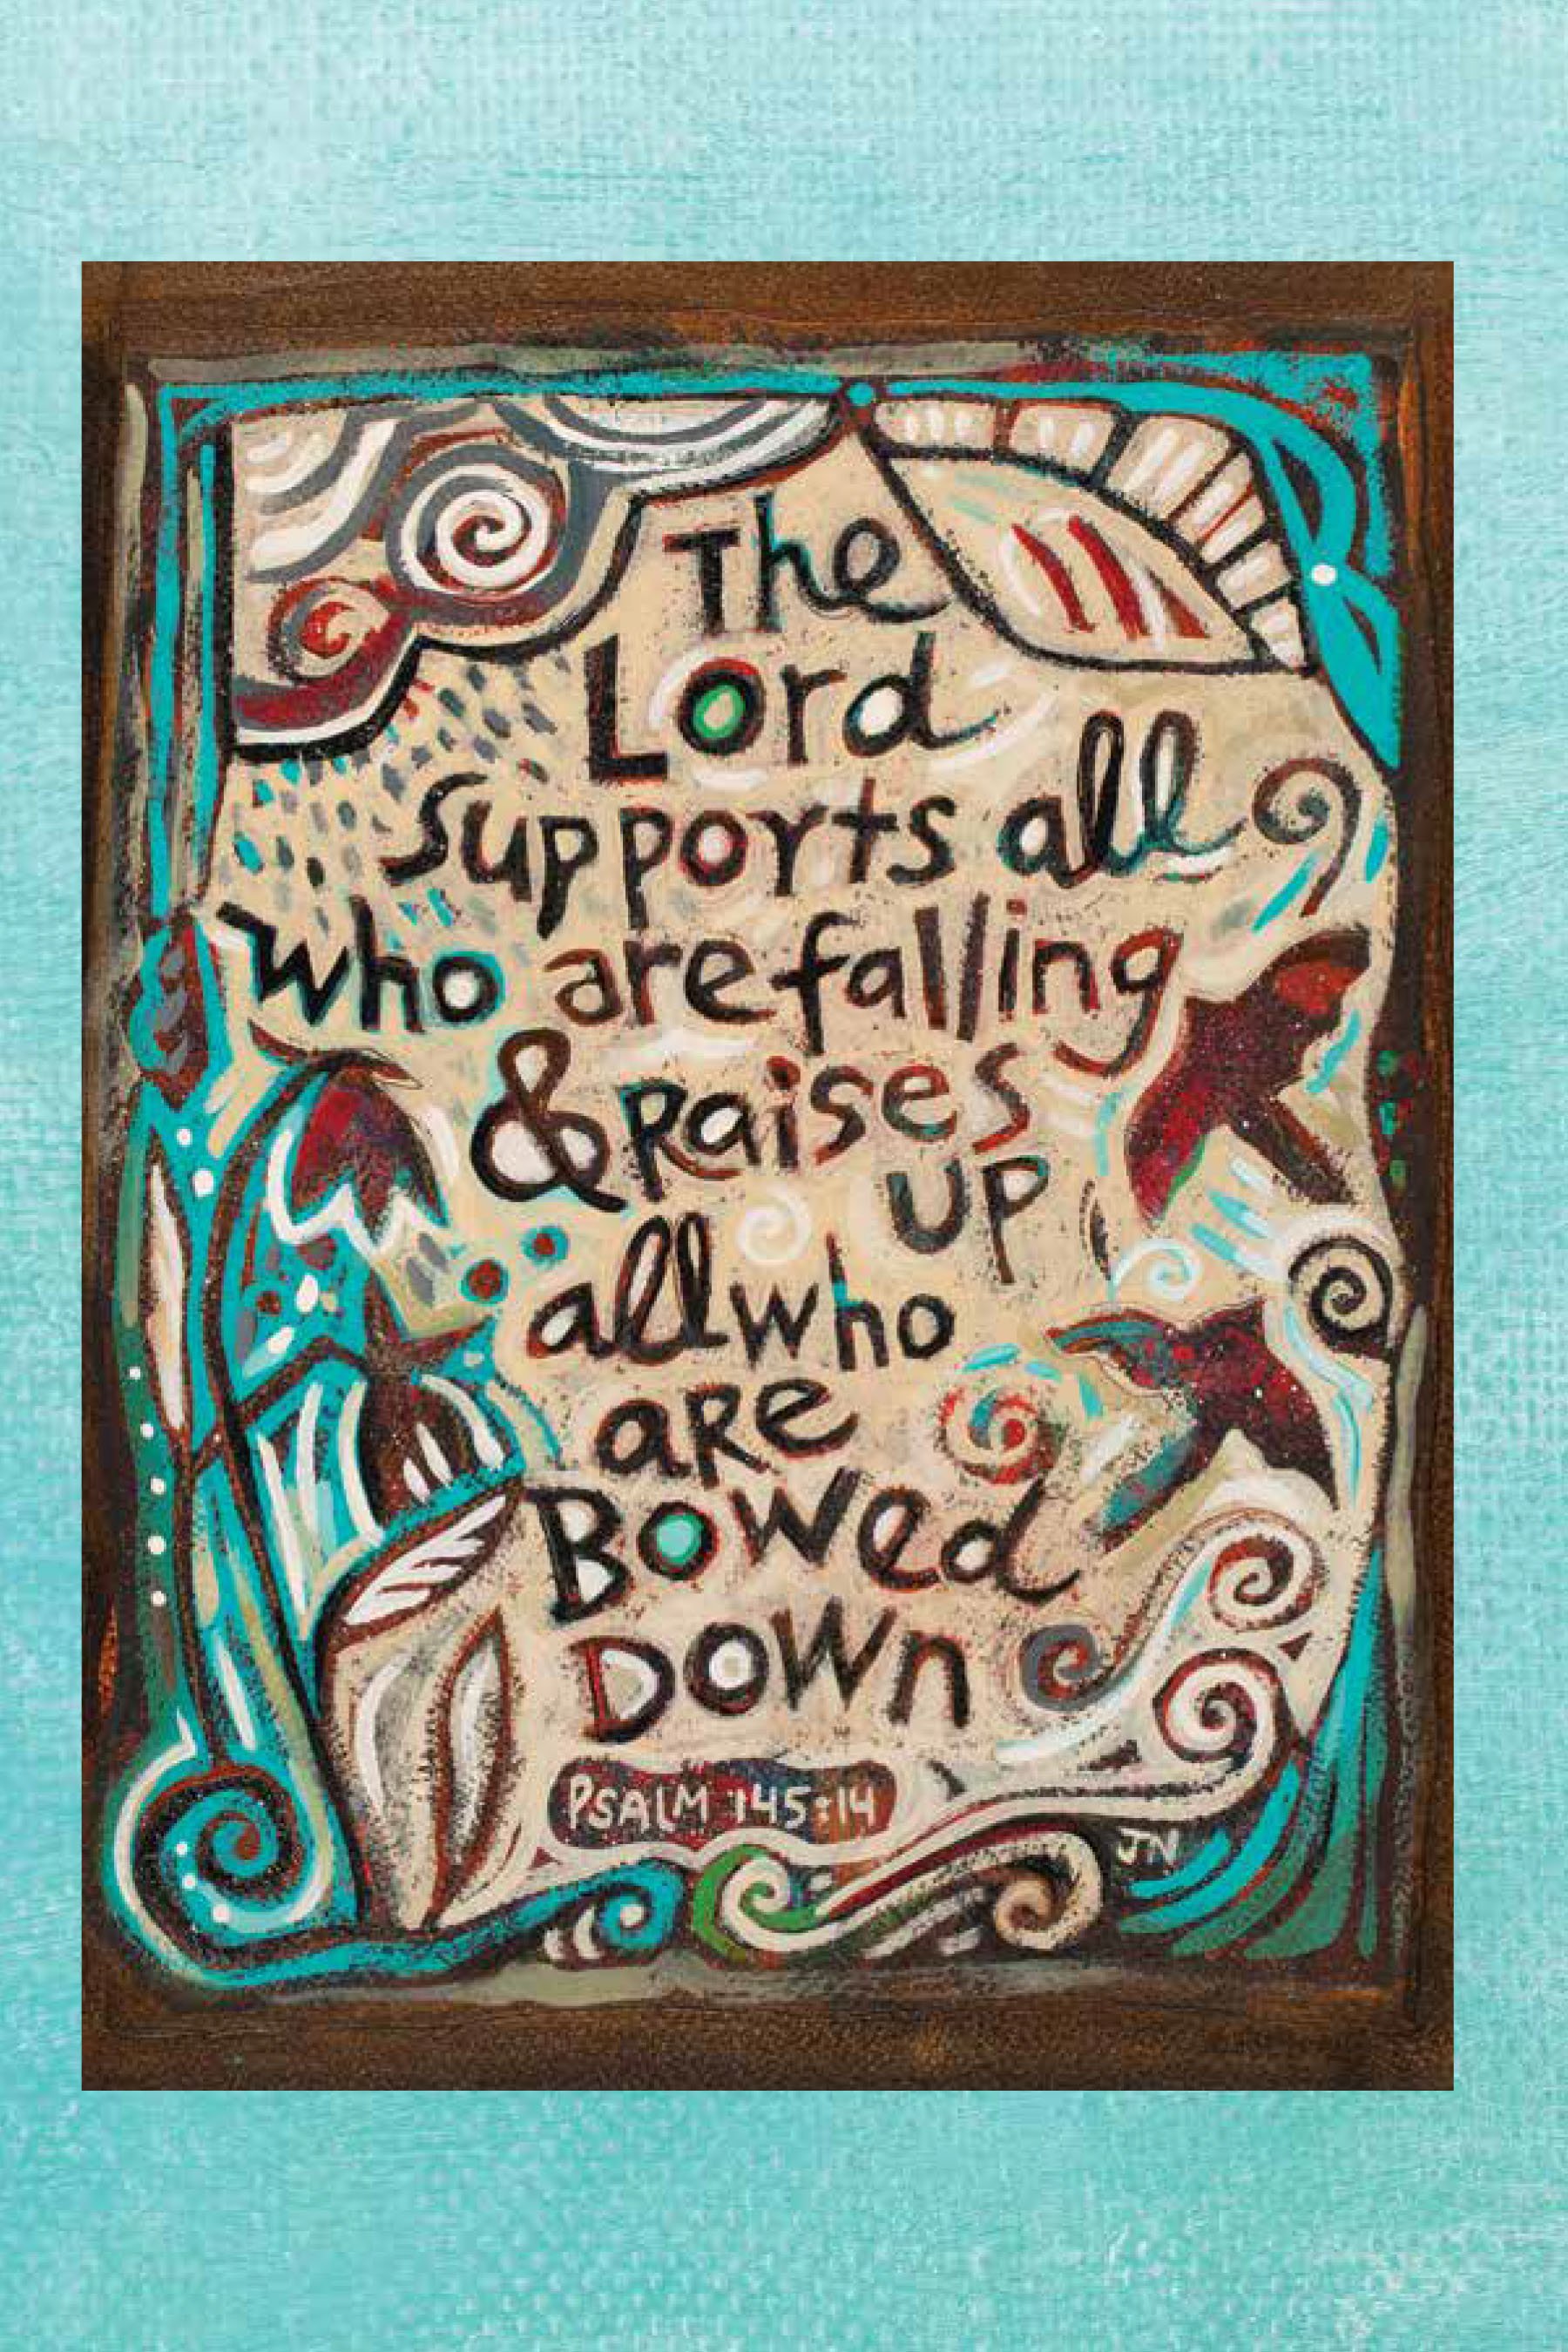 The
Lord
supports all
who are falling
& Raises
up
all who
aRe
Bowed
Down
PSALM 145:14
JN